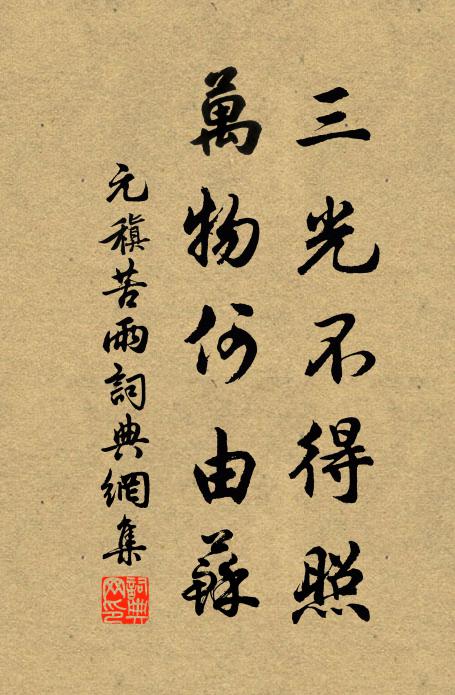 三光不得照
萬物何由蘇
元稹苦雨詞典網集
詞典網印